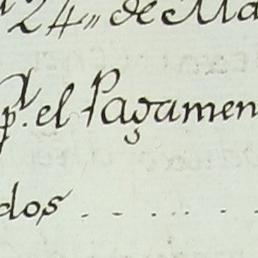 24,, de Ma
p.r el Pagamen
dos . . . . . .